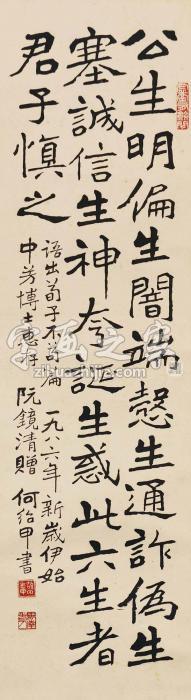 公生明偏生闇端慤生通詐僞生
塞誠信生神夸誕生惑此六生者
君子慎之
語出荀子不苟篇 一九八六年新歲伊始
中芳博士惠存 阮鏡清贈 何紹甲書